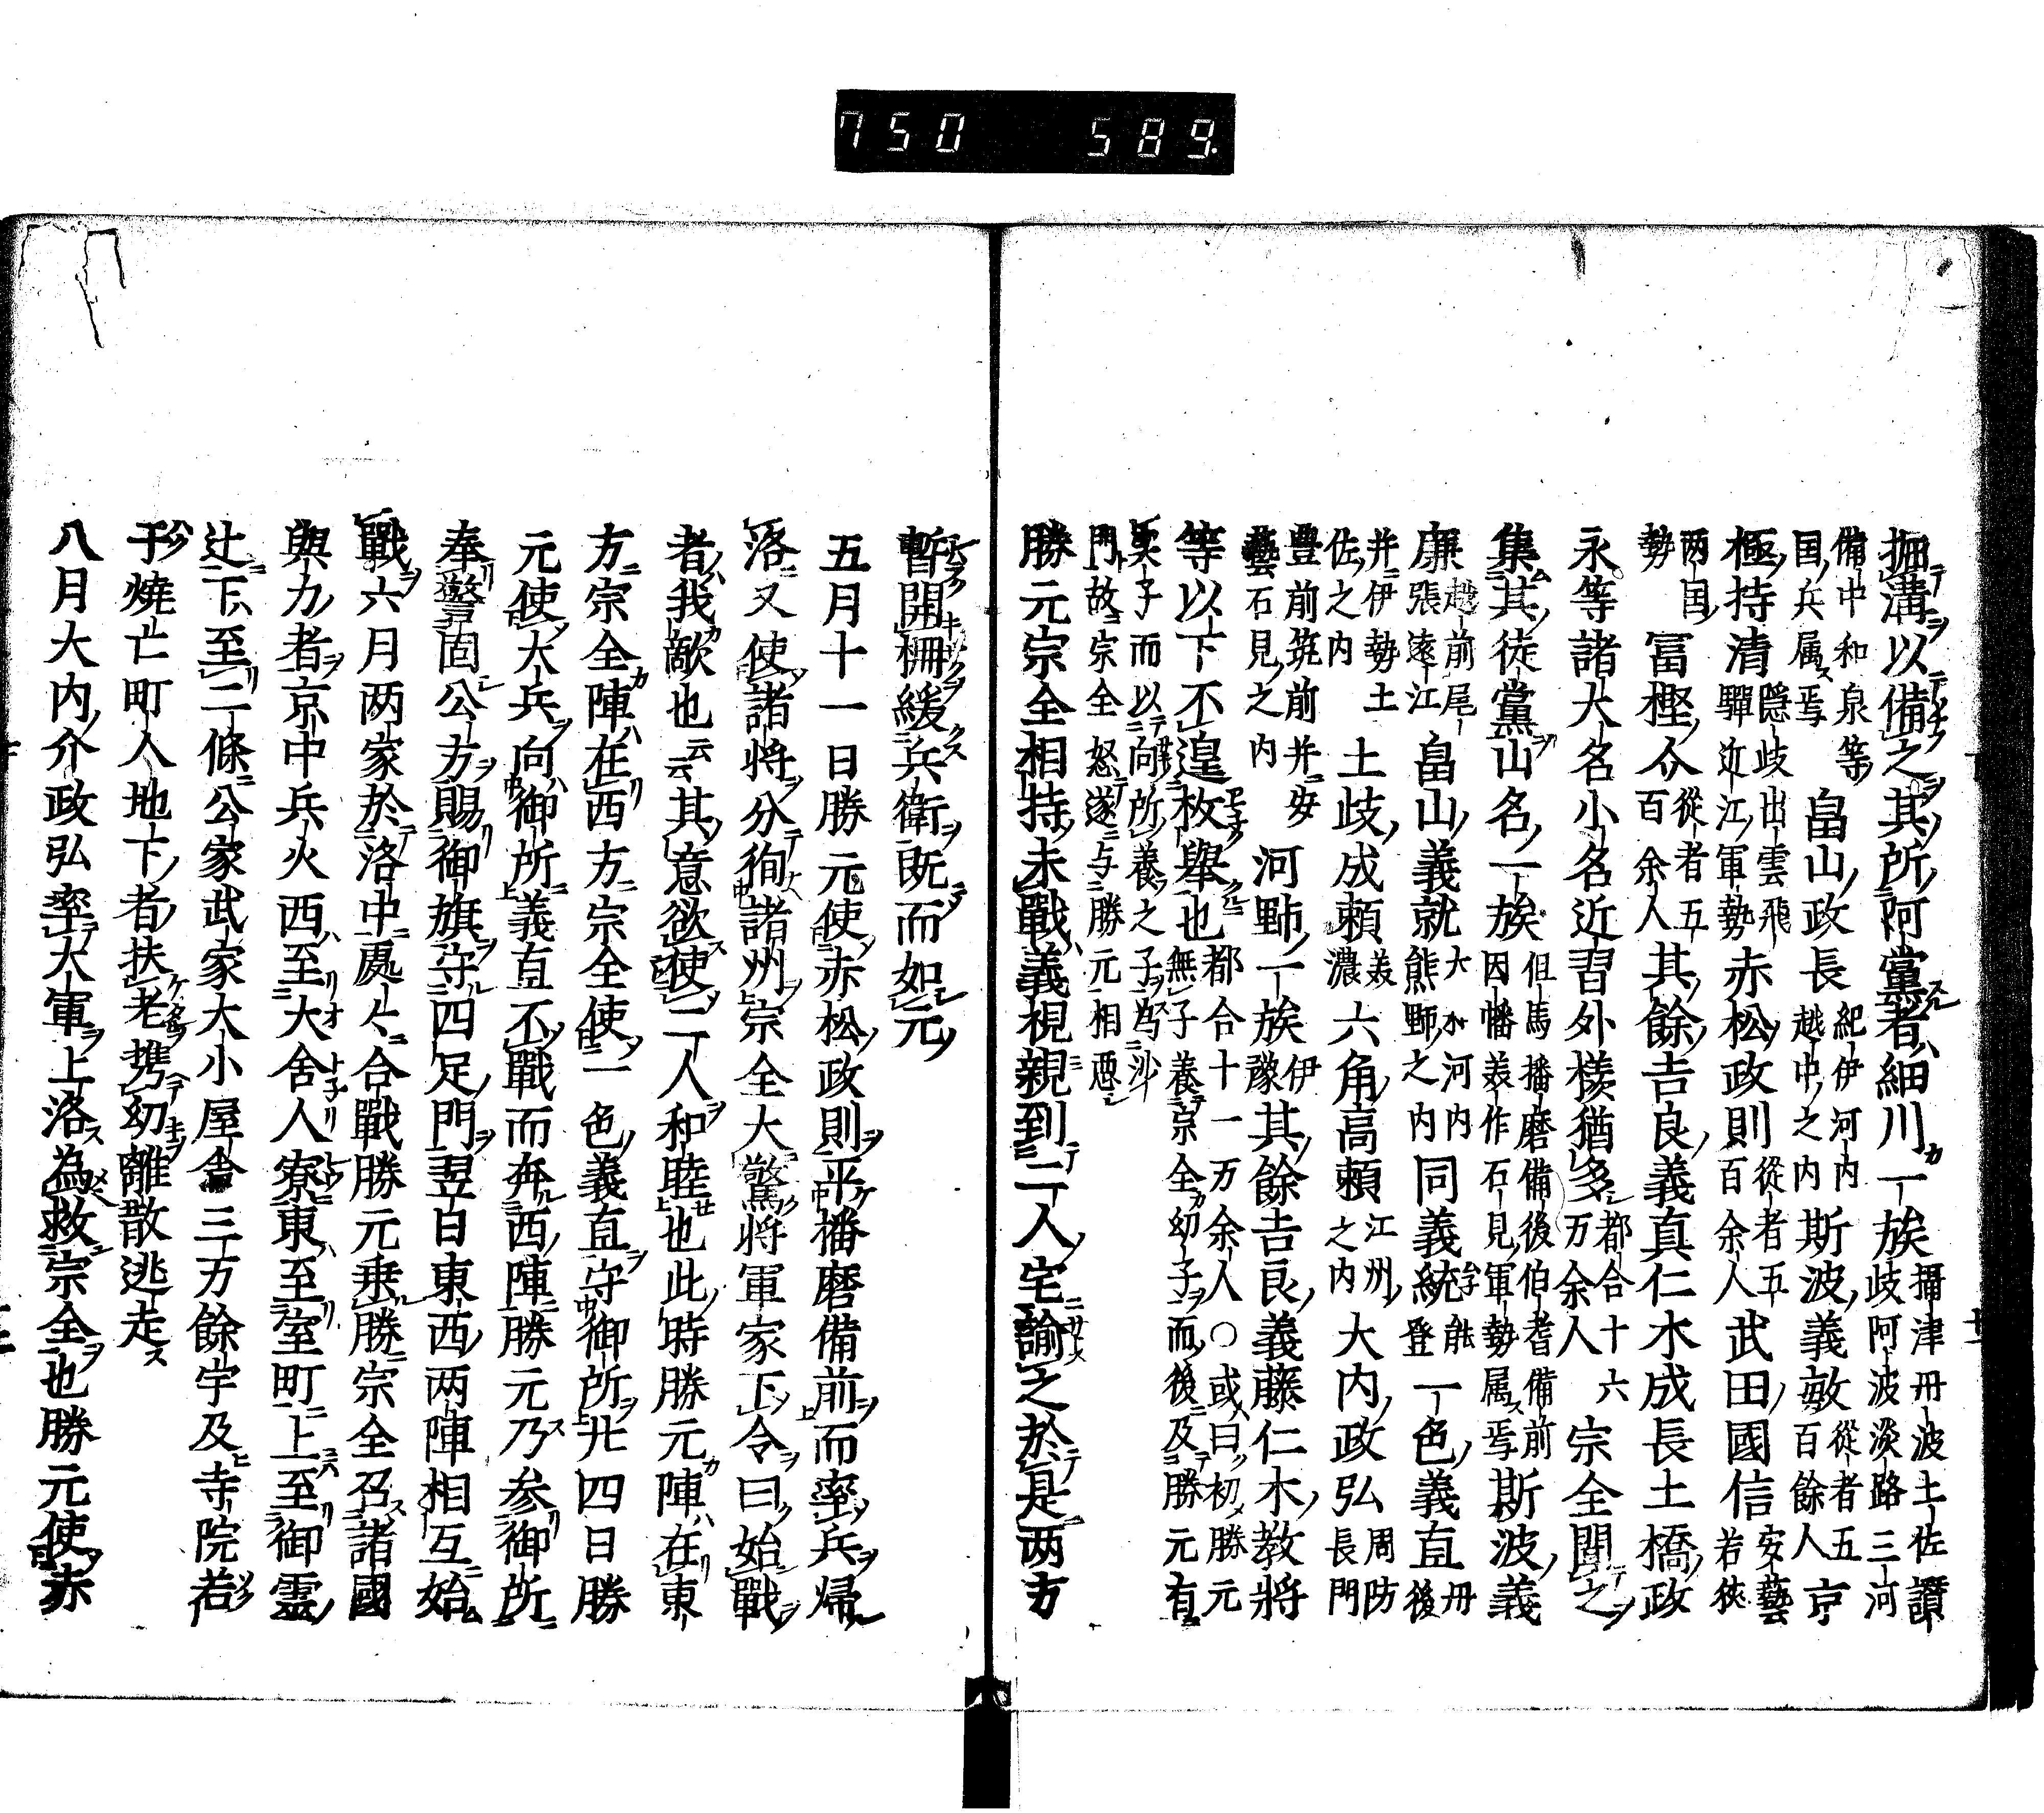 750 589
掘溝以備之其所阿黨者細川一族攝津丹波土佐讃岐阿波淡路三河
備中和泉等国兵属焉畠山政長紀伊河内越中之内斯波義敏從者五百餘人京
極持清隠歧出雲飛驒近江軍勢赤松政則從者五百余人武田國信安藝若狹
两国勢冨樫介從者五百余人其餘吉良義真仁木成長土橋政
永等諸大名小名近習外様猶多都合十六万余人宗全聞之
集其徒黨山名一族但馬播磨備後伯耆備前因幡美作石見軍勢属焉斯波義
廉越前尾張遠江畠山義就大和河内熊野之内同義統能登一色義直丹後
并伊勢土佐之内土歧成頼美濃六角高頼江州之内大内政弘周防長門
豊前筑前并安藝石見之内河野一族伊豫其餘吉良義藤仁木教將
等以下不遑枚舉也都合十一万余人○或曰初勝元無子養宗全幼子而後及勝元有
実子而以向所養之子為沙門故宗全怒遂与勝元相悪
勝元宗全相持未戰義視親到二人宅諭之於是两方
暫開柵緩兵衛既而如元
五月十一日勝元使赤松政則平播磨備前而率兵帰
洛又使諸将分徇諸州宗全大驚将軍家下令曰始戰
者我敵也云云其意欲使二人和睦也此時勝元陣在東
方宗全陣在西方宗全使一色義直守御所廿四日勝
元使大兵向御所義直不戰而奔西陣勝元乃参御所
奉警固公方賜御旗守四足門翌日東西两陣相互始
戰六月两家於洛中處々合戰勝元乗勝宗全召諸國
與力者京中兵火西至大舍人寮東至室町上至御霊
辻下至二條公家武家大小屋舎三万餘宇及寺院若
干燒亡町人地下者扶老携幼離散逃走
八月大内介政弘率大軍上洛為救宗全也勝元使赤